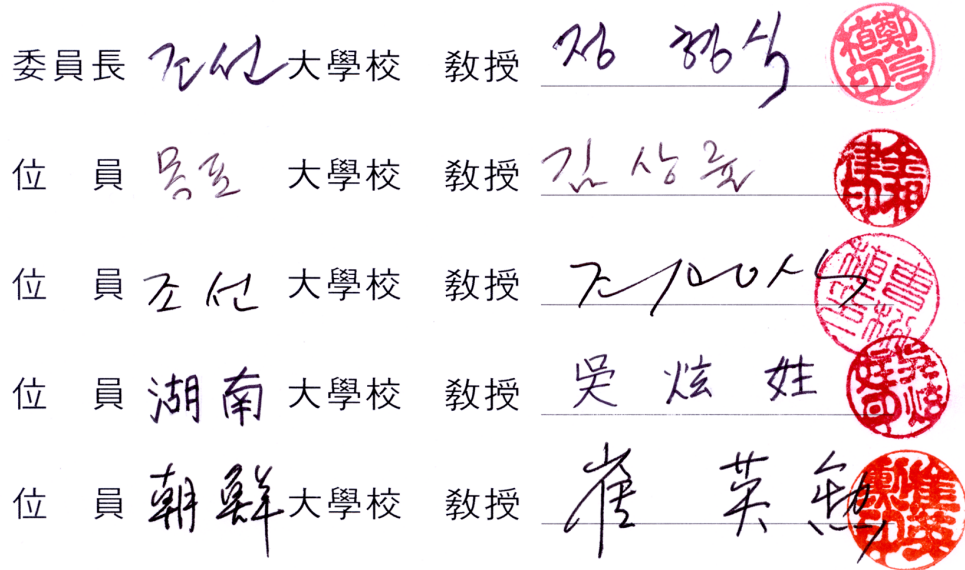 委員長 조선 大學校 敎授 정 형 식
位 員 목포 大學校 敎授 김 상
位 員 조선 大學校 敎授 조
位 員 湖南 大學校 敎授 吳 炫 姓
位 員 朝鮮 大學校 敎授 崔 英 勳